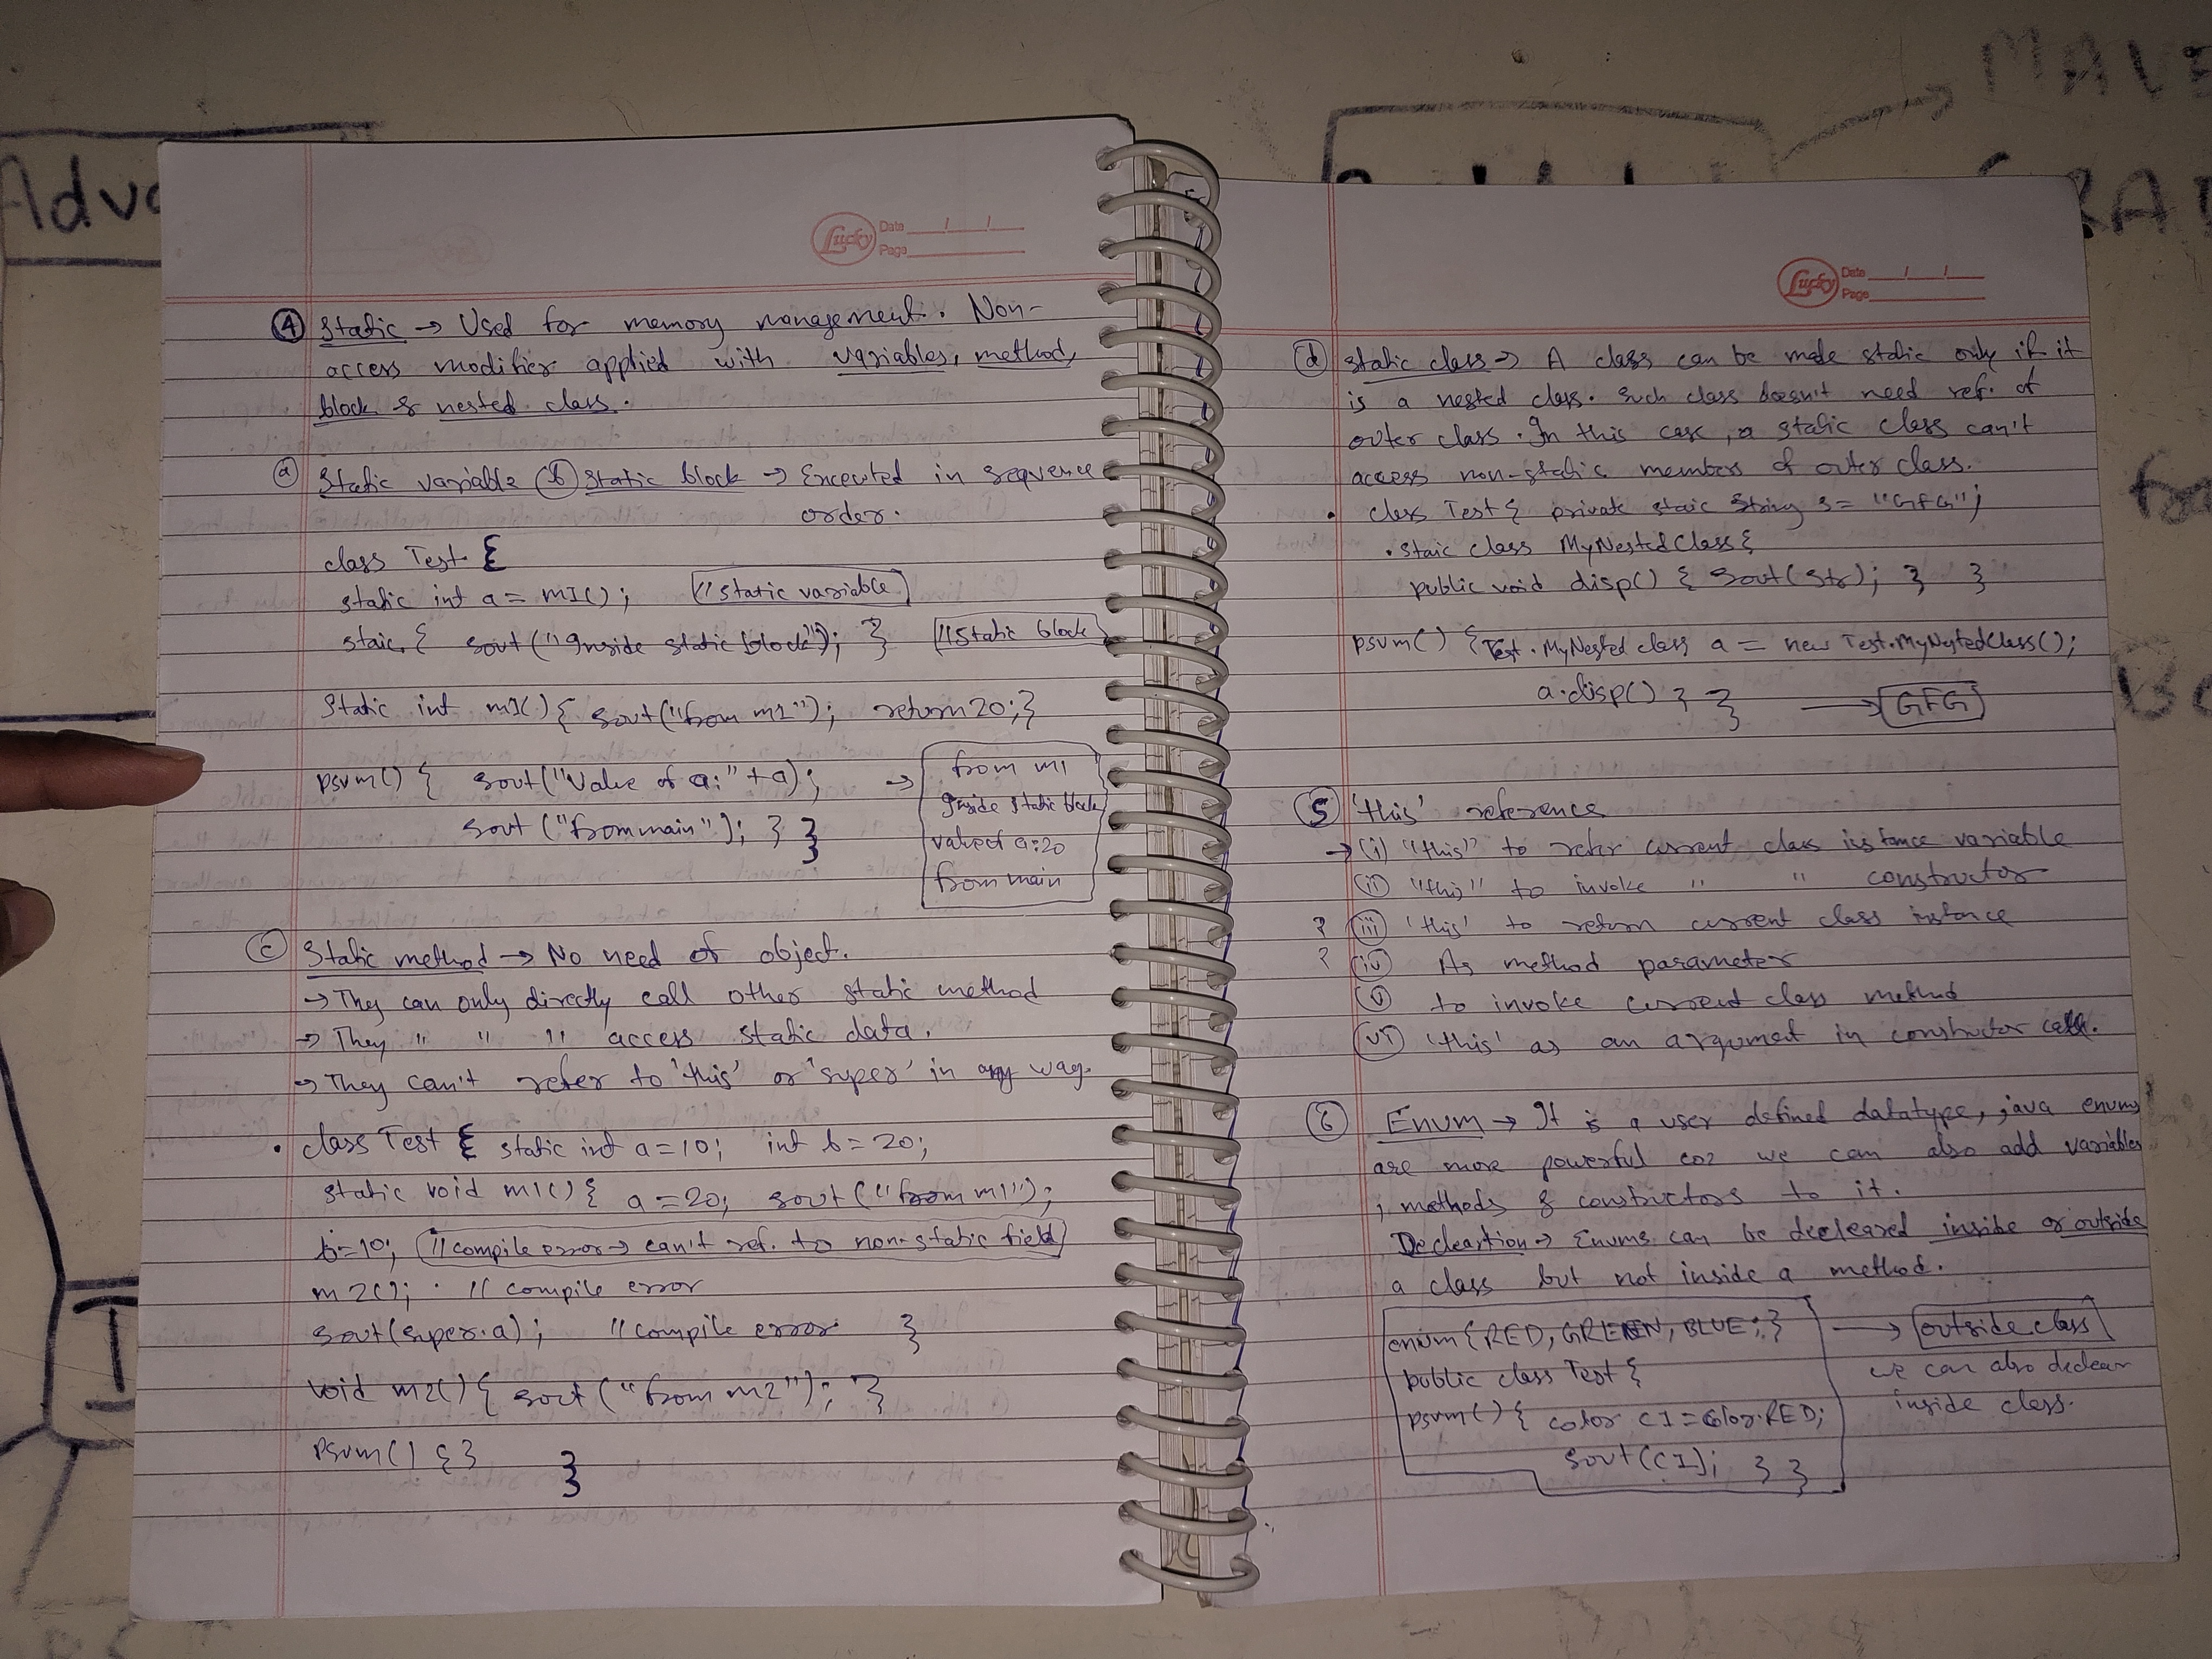 Lucky Date / /
Page
④ Static → Used for memory management. Non-
access modifier applied with variables, method,
block & nested class.
ⓐ Static variable ⓑ Static block → Executed in sequence
order.
class Test {
static int a = m1(); //static variable
staic { sout("Inside static block"); } //Static block
Static int m1() { sout("from m1"); return 20; }
psvm() { sout("Value of a:" + a); → from m1
Inside static block
sout ("from main"); } } value of a:20
from main
ⓒ Static method → No need of object.
→ They can only directly call other static method
→ They " " " access static data.
→ They can't refer to 'this' or 'super' in any way.
• class Test { static int a = 10; int b = 20;
static void m1() { a = 20; sout("from m1");
b=10; //compile error → can't ref. to non-static field
m2(); // compile error
sout(super.a); //compile error }
void m2() { sout ("from m2"); }
psvm() { } }
Lucky Date / /
Page
ⓓ static class → A class can be made static only if it
is a nested class. Such class doesn't need ref. of
outer class. In this case, a static class can't
access non-static members of outer class.
• class Test { private staic String s = "GFG";
• staic class MyNestedClass {
public void disp() { sout(str); } }
psvm() { Test.MyNestedClass a = new Test.MyNestedClass();
a.disp() } } → GFG
⑤ 'this' reference
→ (i) "this" to refer current class instance variable
(ii) "this" to invoke " " constructor
? (iii) 'this' to return current class instance
? (iv) As method parameter
(v) to invoke current class method
(vi) 'this' as an argument in constructor call.
⑥ Enum → It is a user defined datatype, java enums
are more powerful coz we can also add variables
, methods & constructors to it.
Decleartion → Enums can be decleared inside or outside
a class but not inside a method.
enum {RED, GREEN, BLUE;} → outside class
public class Test { we can also declear
psvm() { color c1 = color.RED; inside class.
sout(c1); } }
MAVE
Adva